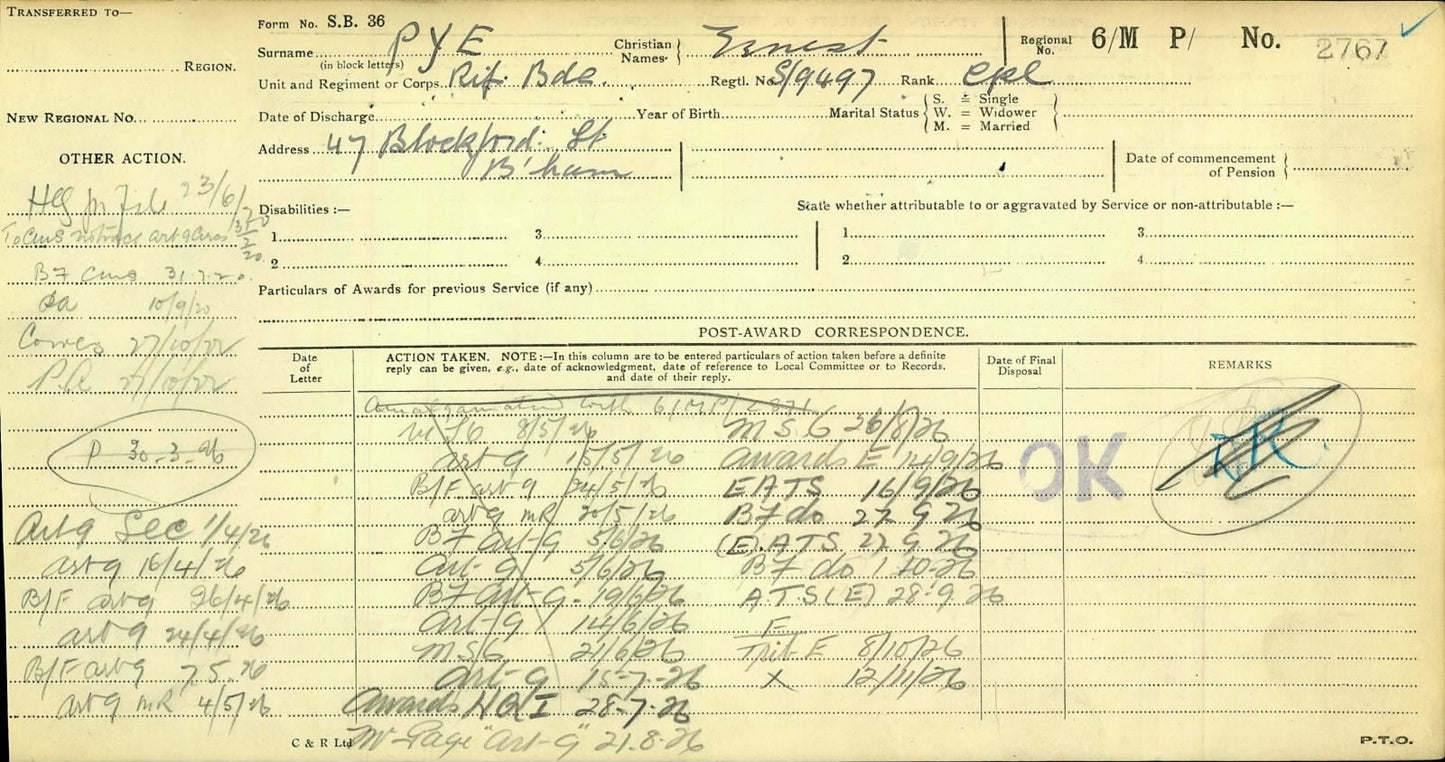 TRANSFERRED TO—
REGION.
NEW REGIONAL No.
OTHER ACTION.
23/6/20
B7 Cms 31.7.20
10/9/20
27/10/22
P.A 27/10/22
P 30-3-26
Art 9 Sec 1/4/26
art 9 16/4/26
B/F art 9 26/4/26
art 9 24/4/26
B/F art 9 7.5.26
art 9 MR 4/5/26
Form No. S.B. 36
Surname PYE Christian Names Ernest
(in block letters)
Regional No. 6/M P/ No. 2767
Unit and Regiment or Corps Rif. Bde. Regtl. No. S/9497 Rank Cpl
Date of Discharge Year of Birth Marital Status { S. = Single
W. = Widower
M. = Married
Address 47 Blockford St
B'ham
Date of commencement of Pension
Disabilities :— State whether attributable to or aggravated by Service or non-attributable :—
1 3 1 3
2 4 2 4
Particulars of Awards for previous Service (if any)
POST-AWARD CORRESPONDENCE.
Date of Letter
ACTION TAKEN. NOTE:—In this column are to be entered particulars of action taken before a definite
reply can be given, e.g., date of acknowledgment, date of reference to Local Committee or to Records,
and date of their reply.
Date of Final Disposal
REMARKS
Amalgamated with 6/MP/2871
8/5/26 MSG 26/8/26
art 9 15/5/26 awards E 14/9/26
B/F art 9 24/5/26 EATS 16/9/26
art 9 MR 20/5/26 B7 do 27 9 26
B7 art 9 5/6/26 (E).ATS 27 9 26
Art 9 5/6/26 B7 do 1 10-26
B7 Art 9 19/6/26 A.T.S (E) 28.9 26
Art 9 14/6/26 F
MSG 21/6/26 E 8/10/26
Art 9 15-7-26 X 12/11/26
Awards 28-7-26
Mr Page "Art-9" 21.8.26
OK
OK
C & R Ltd
P.T.O.